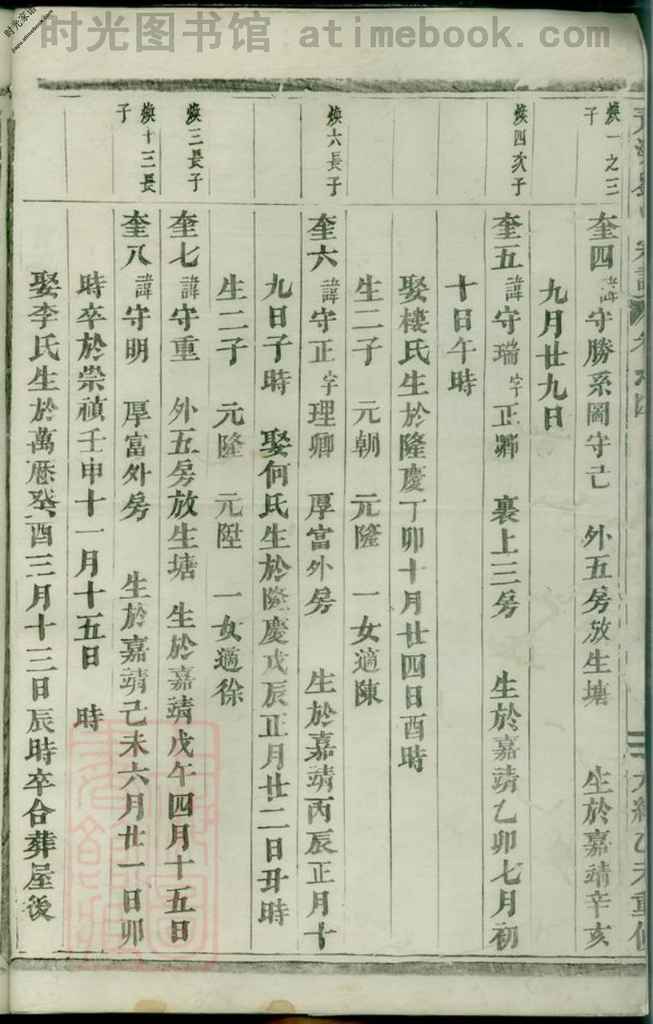 时光图书馆 atimebook.com
时光家谱
焕一之三
子
奎四諱守勝系圖守己 外五房放生塘 生於嘉靖辛亥
九月廿九日
焕四次子
奎五諱守瑞字正卿 裏上三房 生於嘉靖乙卯七月初
十日午時
娶樓氏生於隆慶丁卯十月廿四日酉時
生二子 元朝 元隆 一女適陳
焕六長子
奎六諱守正字理卿 厚富外房 生於嘉靖丙辰正月十
九日子時 娶何氏生於隆慶戊辰正月廿二日丑時
生二子 元隆 元陞 一女適徐
焕三長子
奎七諱守重 外五房放生塘 生於嘉靖戊午四月十五日
焕十三長
子
奎八諱守明 厚富外房 生於嘉靖己未六月廿一日卯
時卒於崇禎壬申十一月十五日 時
娶李氏生於萬曆癸酉三月十三日辰時卒合葬屋後